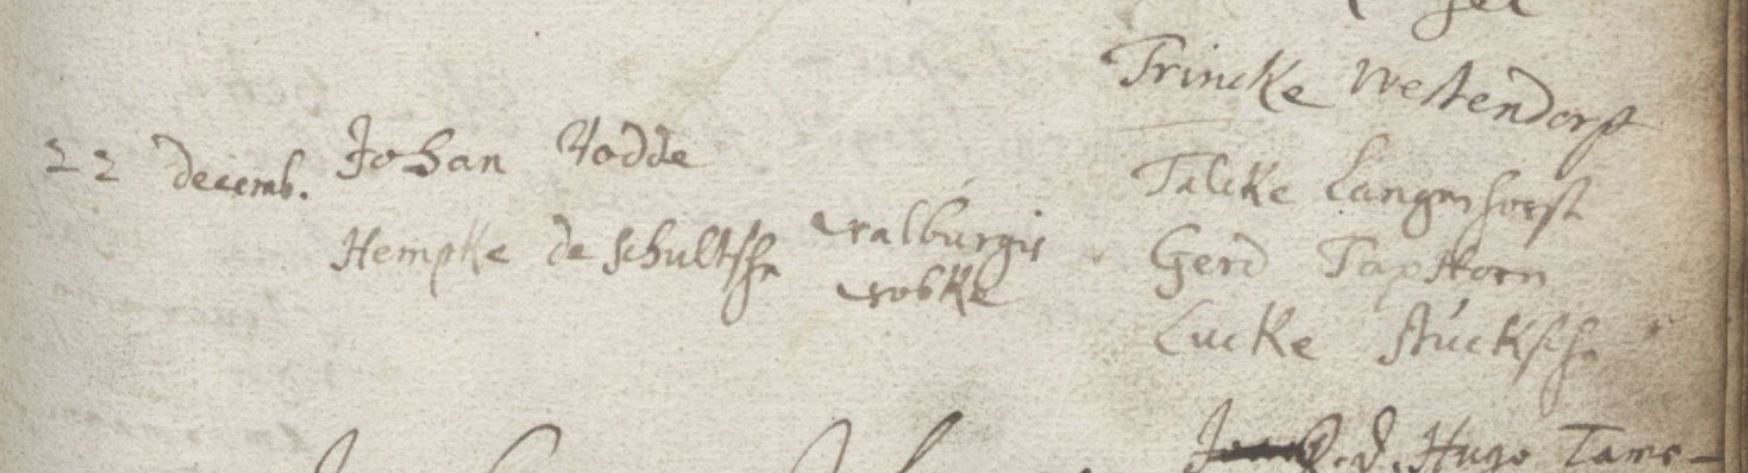 Trincke Westendorp
22 decemb. Johan Rodde
Talcke Langenhorst
Hempke de schultsche walburgis
Gerd Tapkorn
wobke
Lucke stúcksche
d. Hugo Tams-